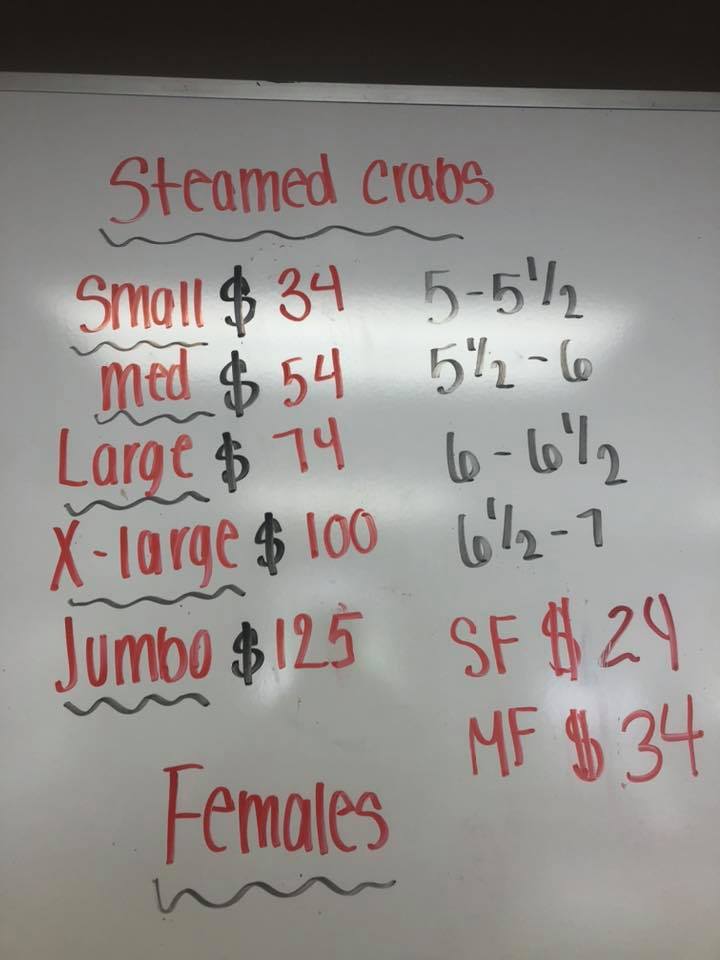 Steamed crabs
Small $ 34 5-5 1/2
med $ 54 5 1/2 - 6
Large $ 74 6 - 6 1/2
X-large $ 100 6 1/2 - 7
Jumbo $ 125 SF $ 24
MF $ 34
Females